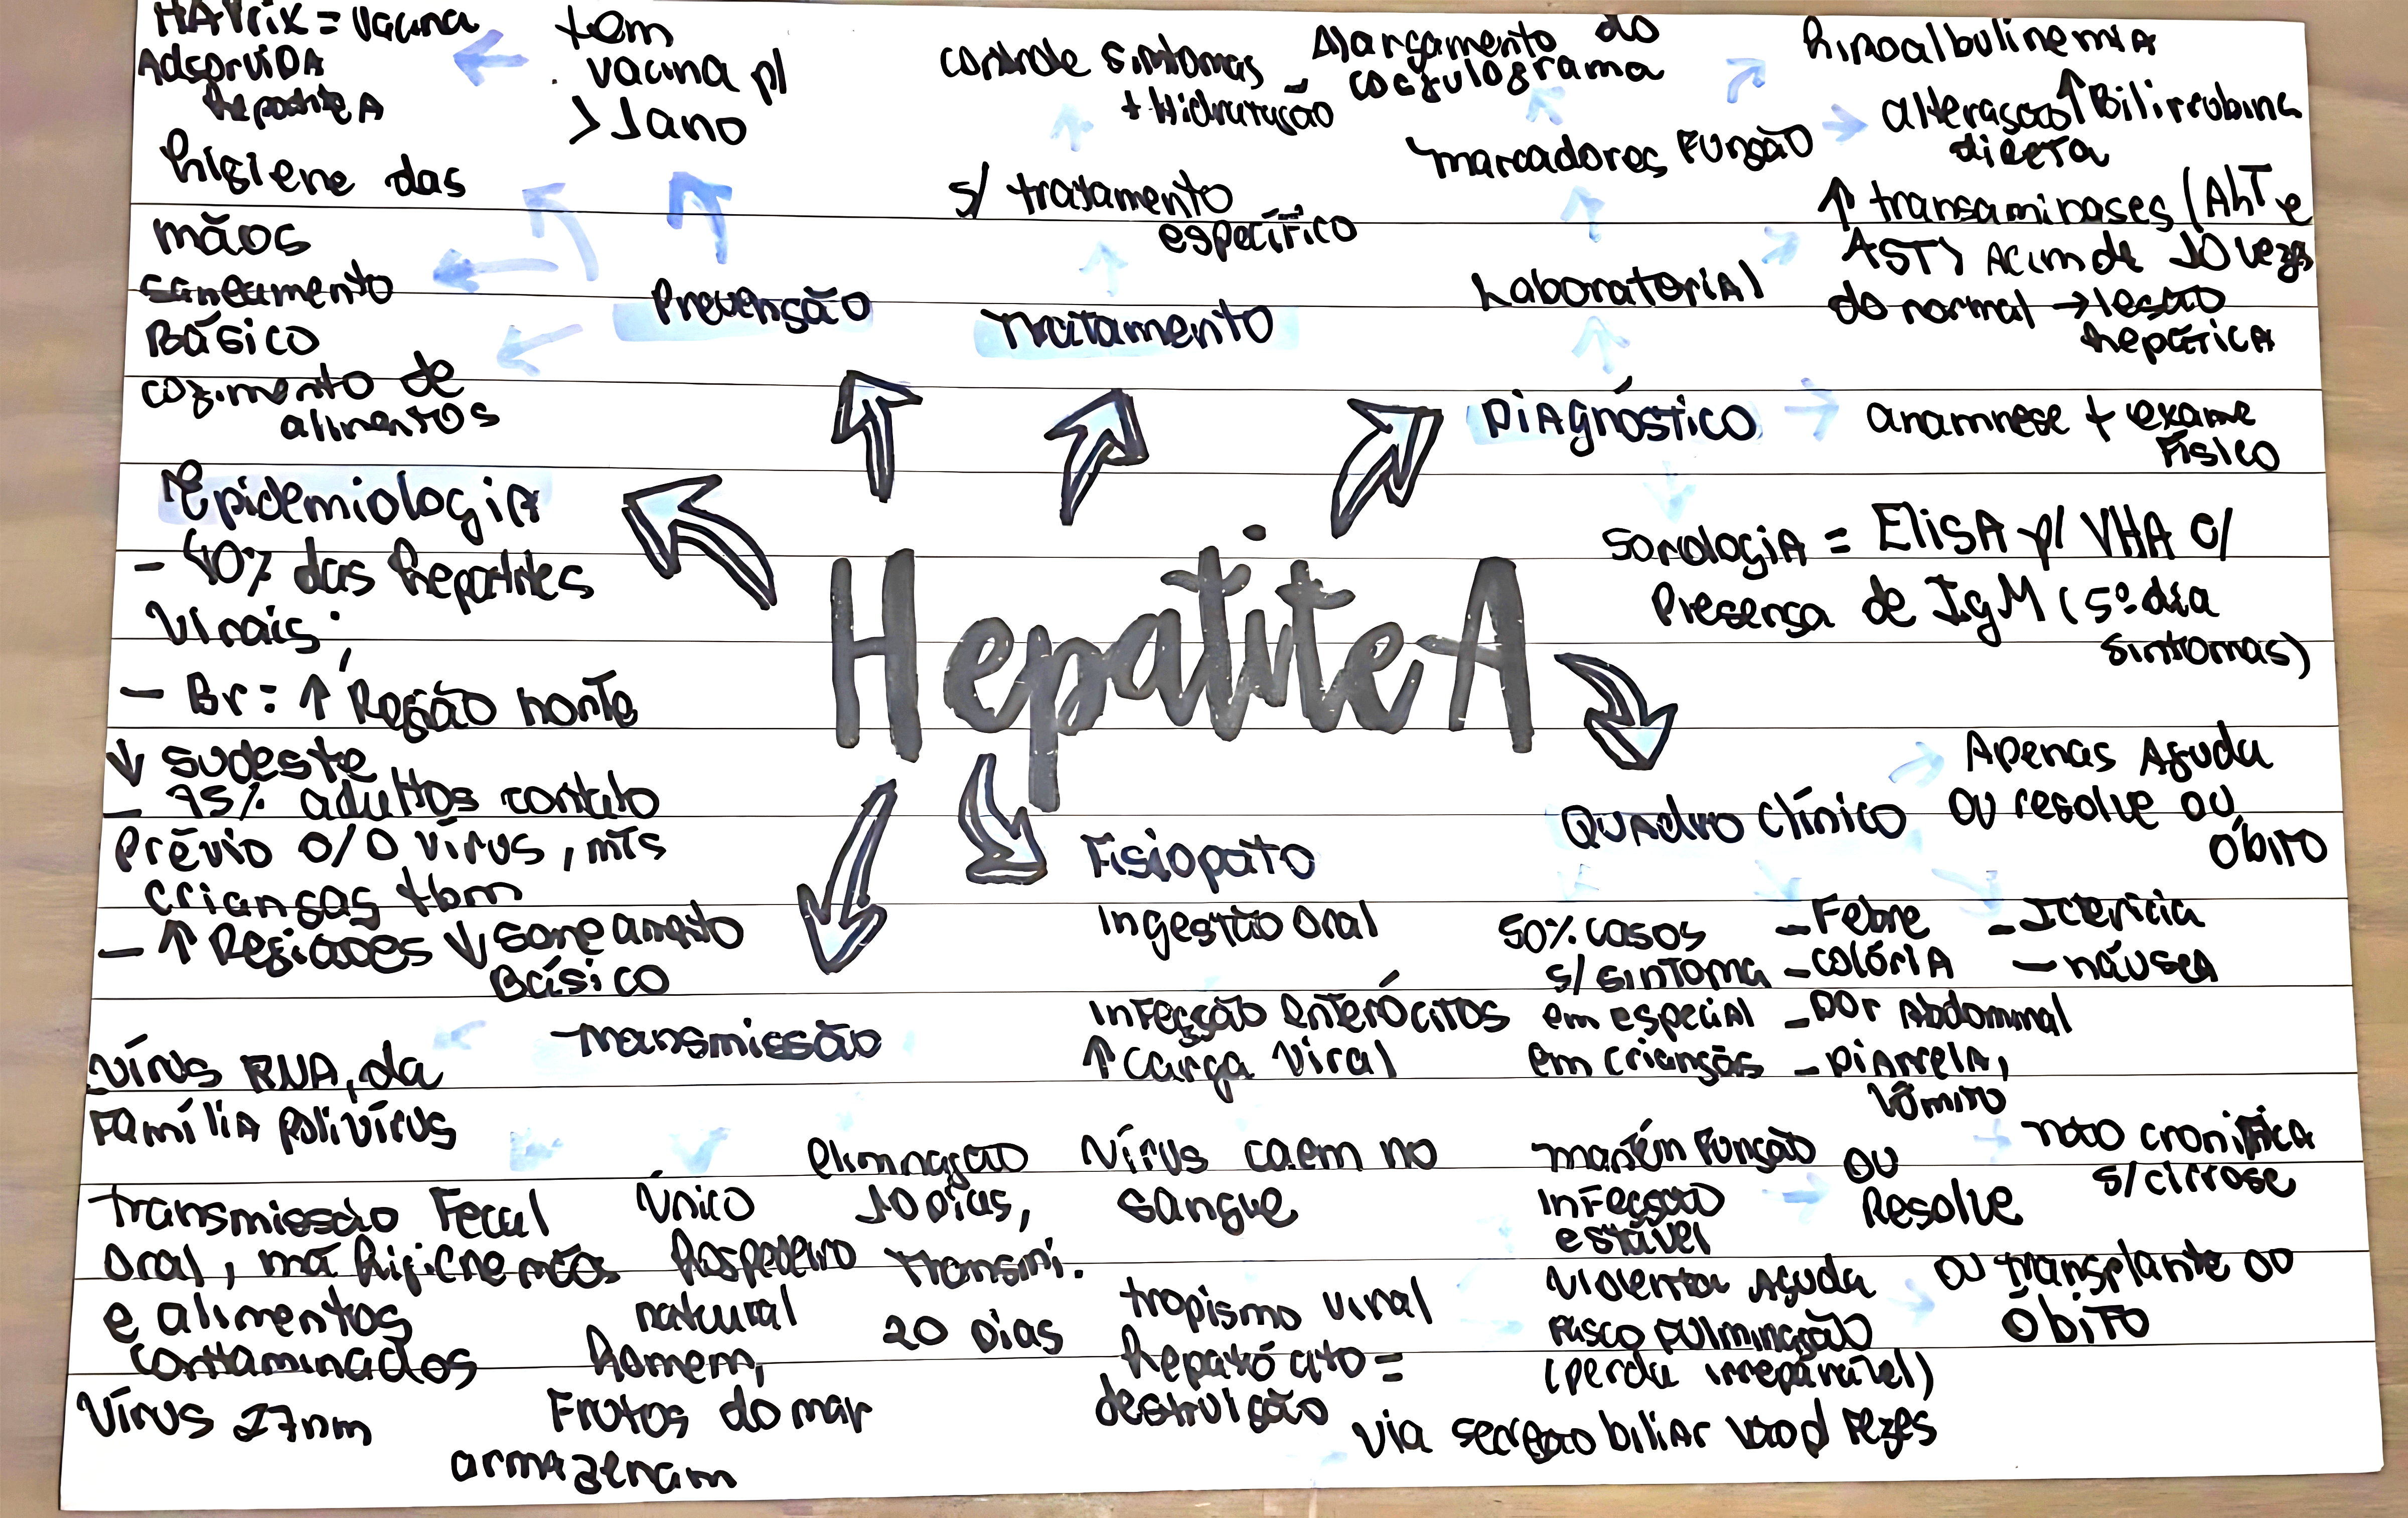 HAVrix = vacina
Adsorvida
hepatite A
tem
vacina p/
> 1 ano
higiene das
mãos
saneamento
Básico
cozimento de
alimentos
Prevensão
controle sintomas
+ Hidratação
s/ tratamento
específico
Tratamento
Alargamento do
coagulograma
hipoalbulinemia
marcadores Função
alteração ↑ Bilirrubina
direta
Laboratorial
↑ transaminases (ALT e
AST) Acima de 10 vezes
do normal → lesão
hepática
Diagnóstico
anamnese + exame
Físico
Sorologia = ElisA p/ VHA c/
Presença de IgM (5º dia
sintomas)
Epidemiologia
- 40% das hepatites
Virais;
- Br: ↑ Região norte
↓ sudeste
- 95% adultos contato
Prévio c/ o vírus, mts
crianças tbm
- ↑ Regiões ↓ saneamento
Básico
Hepatite A
Quadro clínico
Apenas Aguda
ou resolve ou
óbito
50% casos
s/ sintoma
em especial
em crianças
- Febre
- colúria
- Dor Abdominal
- Diarreia,
Vômito
- Icterícia
- náusea
Fisiopato
Ingestão oral
Infecção enterócitos
↑ carga viral
Vírus caem no
sangue
tropismo viral
hepatócito =
destruição
mantém Função
Infecção
estável
ou
Resolve
não cronifica
s/ cirrose
Violenta Aguda
Risco Fulminação
(perda irreparável)
ou transplante ou
óbito
via secreção biliar vão p/ Fezes
Transmissão
Vírus RNA, da
Família polivírus
transmissão Fecal
oral, má higiene mãos
e alimentos
contaminados
Vírus 27nm
Único
hospedeiro
natural
homem,
Frutos do mar
armazenam
eliminação
10 dias,
transmi.
20 dias